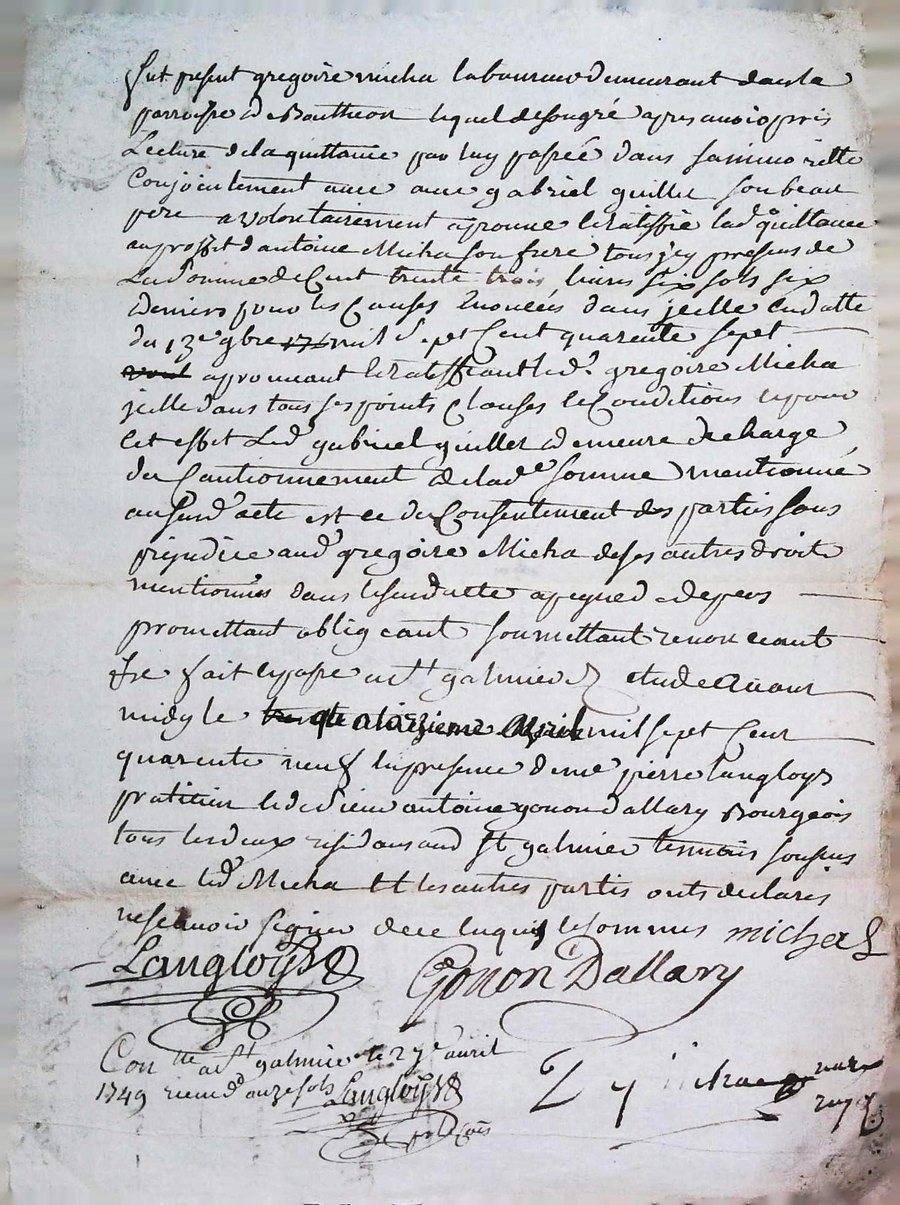 fut present gregoire micha laboureur demeurant dans la
parroisse de Boutheon lequel de son gré apres avoir pris
Lecture de la quittance par luy passée dans sa minoritte
Conjointement avec gabriel guillet son beau
pere a volontairement aprouve et ratiffie lad. quittance
au proffit d'antoine Micha son frere tous jcy presens de
La somme de Cent trente trois livres six sols six
deniers pour les Causes Enoncées dans jcelle en datte
du 13e 9bre mil sept Cent quarente sept
aprouvant et ratiffiant led. gregoire Micha
jcelle dans tous ses points Clauses et Conditions et pour
Cet effet Led. gabriel guillet demeure decharge
du Cautionnement de lad.e somme mentionné
au susd. acte et ce du Consentement des parties sans
prejudice aud. gregoire Micha de ses autres droits
mentionnés dans le susd. acte
promettant obligeant soumettant renonceant
fait et passe a st galmier Etude avant
midy le quatorzieme Apvril mil sept Cent
quarente neuf En presence de me pierre Langloys
praticien et de sieur antoine gonon Dallary Bourgeois
tous les deux residans aud. st galmier temoins soussignes
avec led. Micha Et les autres partis onts declarés
ne scavoir signer de ce enquis et sommes micha
Langloys Gonon Dallary
Con lle a st galmier le 27e avril
1749 receu onze sols Langloys